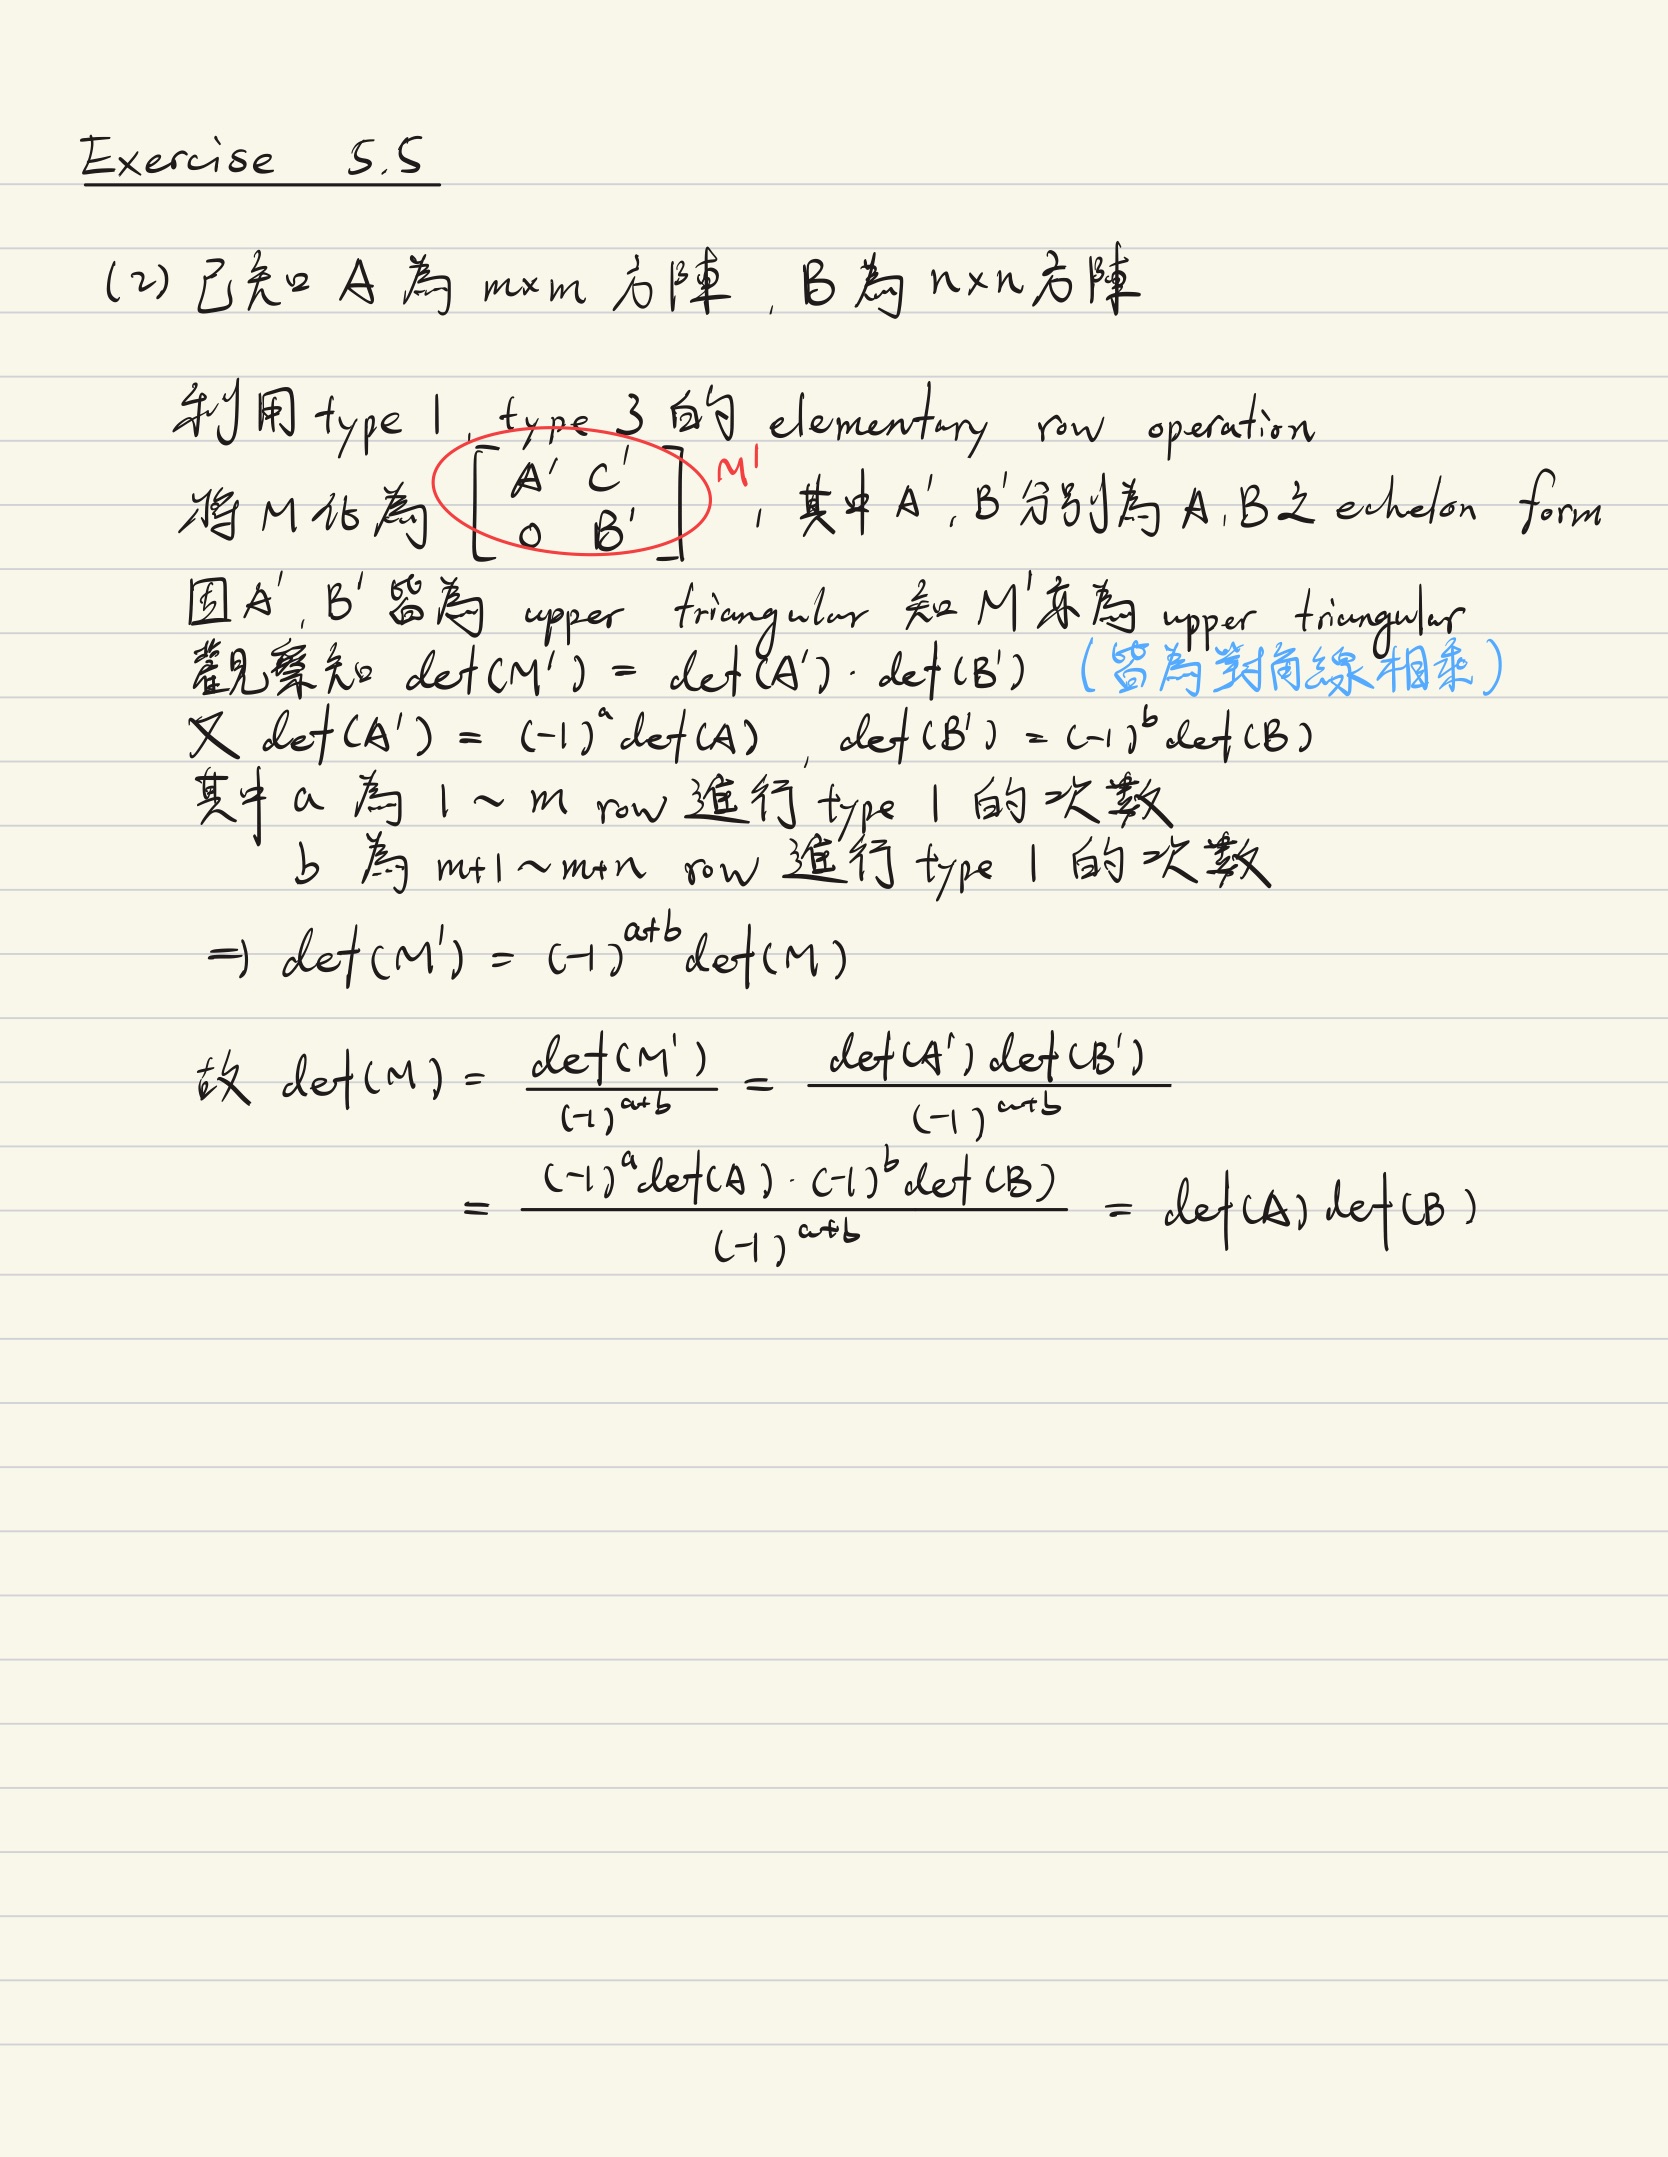 Exercise 5.5
(2) 已知 A 為 m×m 方陣, B 為 n×n 方陣
利用 type 1, type 3 的 elementary row operation
將 M 化為 [ A' C' ; 0 B' ] M' , 其中 A', B' 分別為 A, B 之 echelon form
因 A', B' 皆為 upper triangular 知 M' 亦為 upper triangular
觀察知 det(M') = det(A') · det(B') (皆為對角線相乘)
又 det(A') = (-1)^a det(A) , det(B') = (-1)^b det(B)
其中 a 為 1 ~ m row 進行 type 1 的次數
b 為 m+1 ~ m+n row 進行 type 1 的次數
⇒ det(M') = (-1)^{a+b} det(M)
故 det(M) = det(M') / (-1)^{a+b} = det(A') det(B') / (-1)^{a+b}
= (-1)^a det(A) · (-1)^b det(B) / (-1)^{a+b} = det(A) det(B)